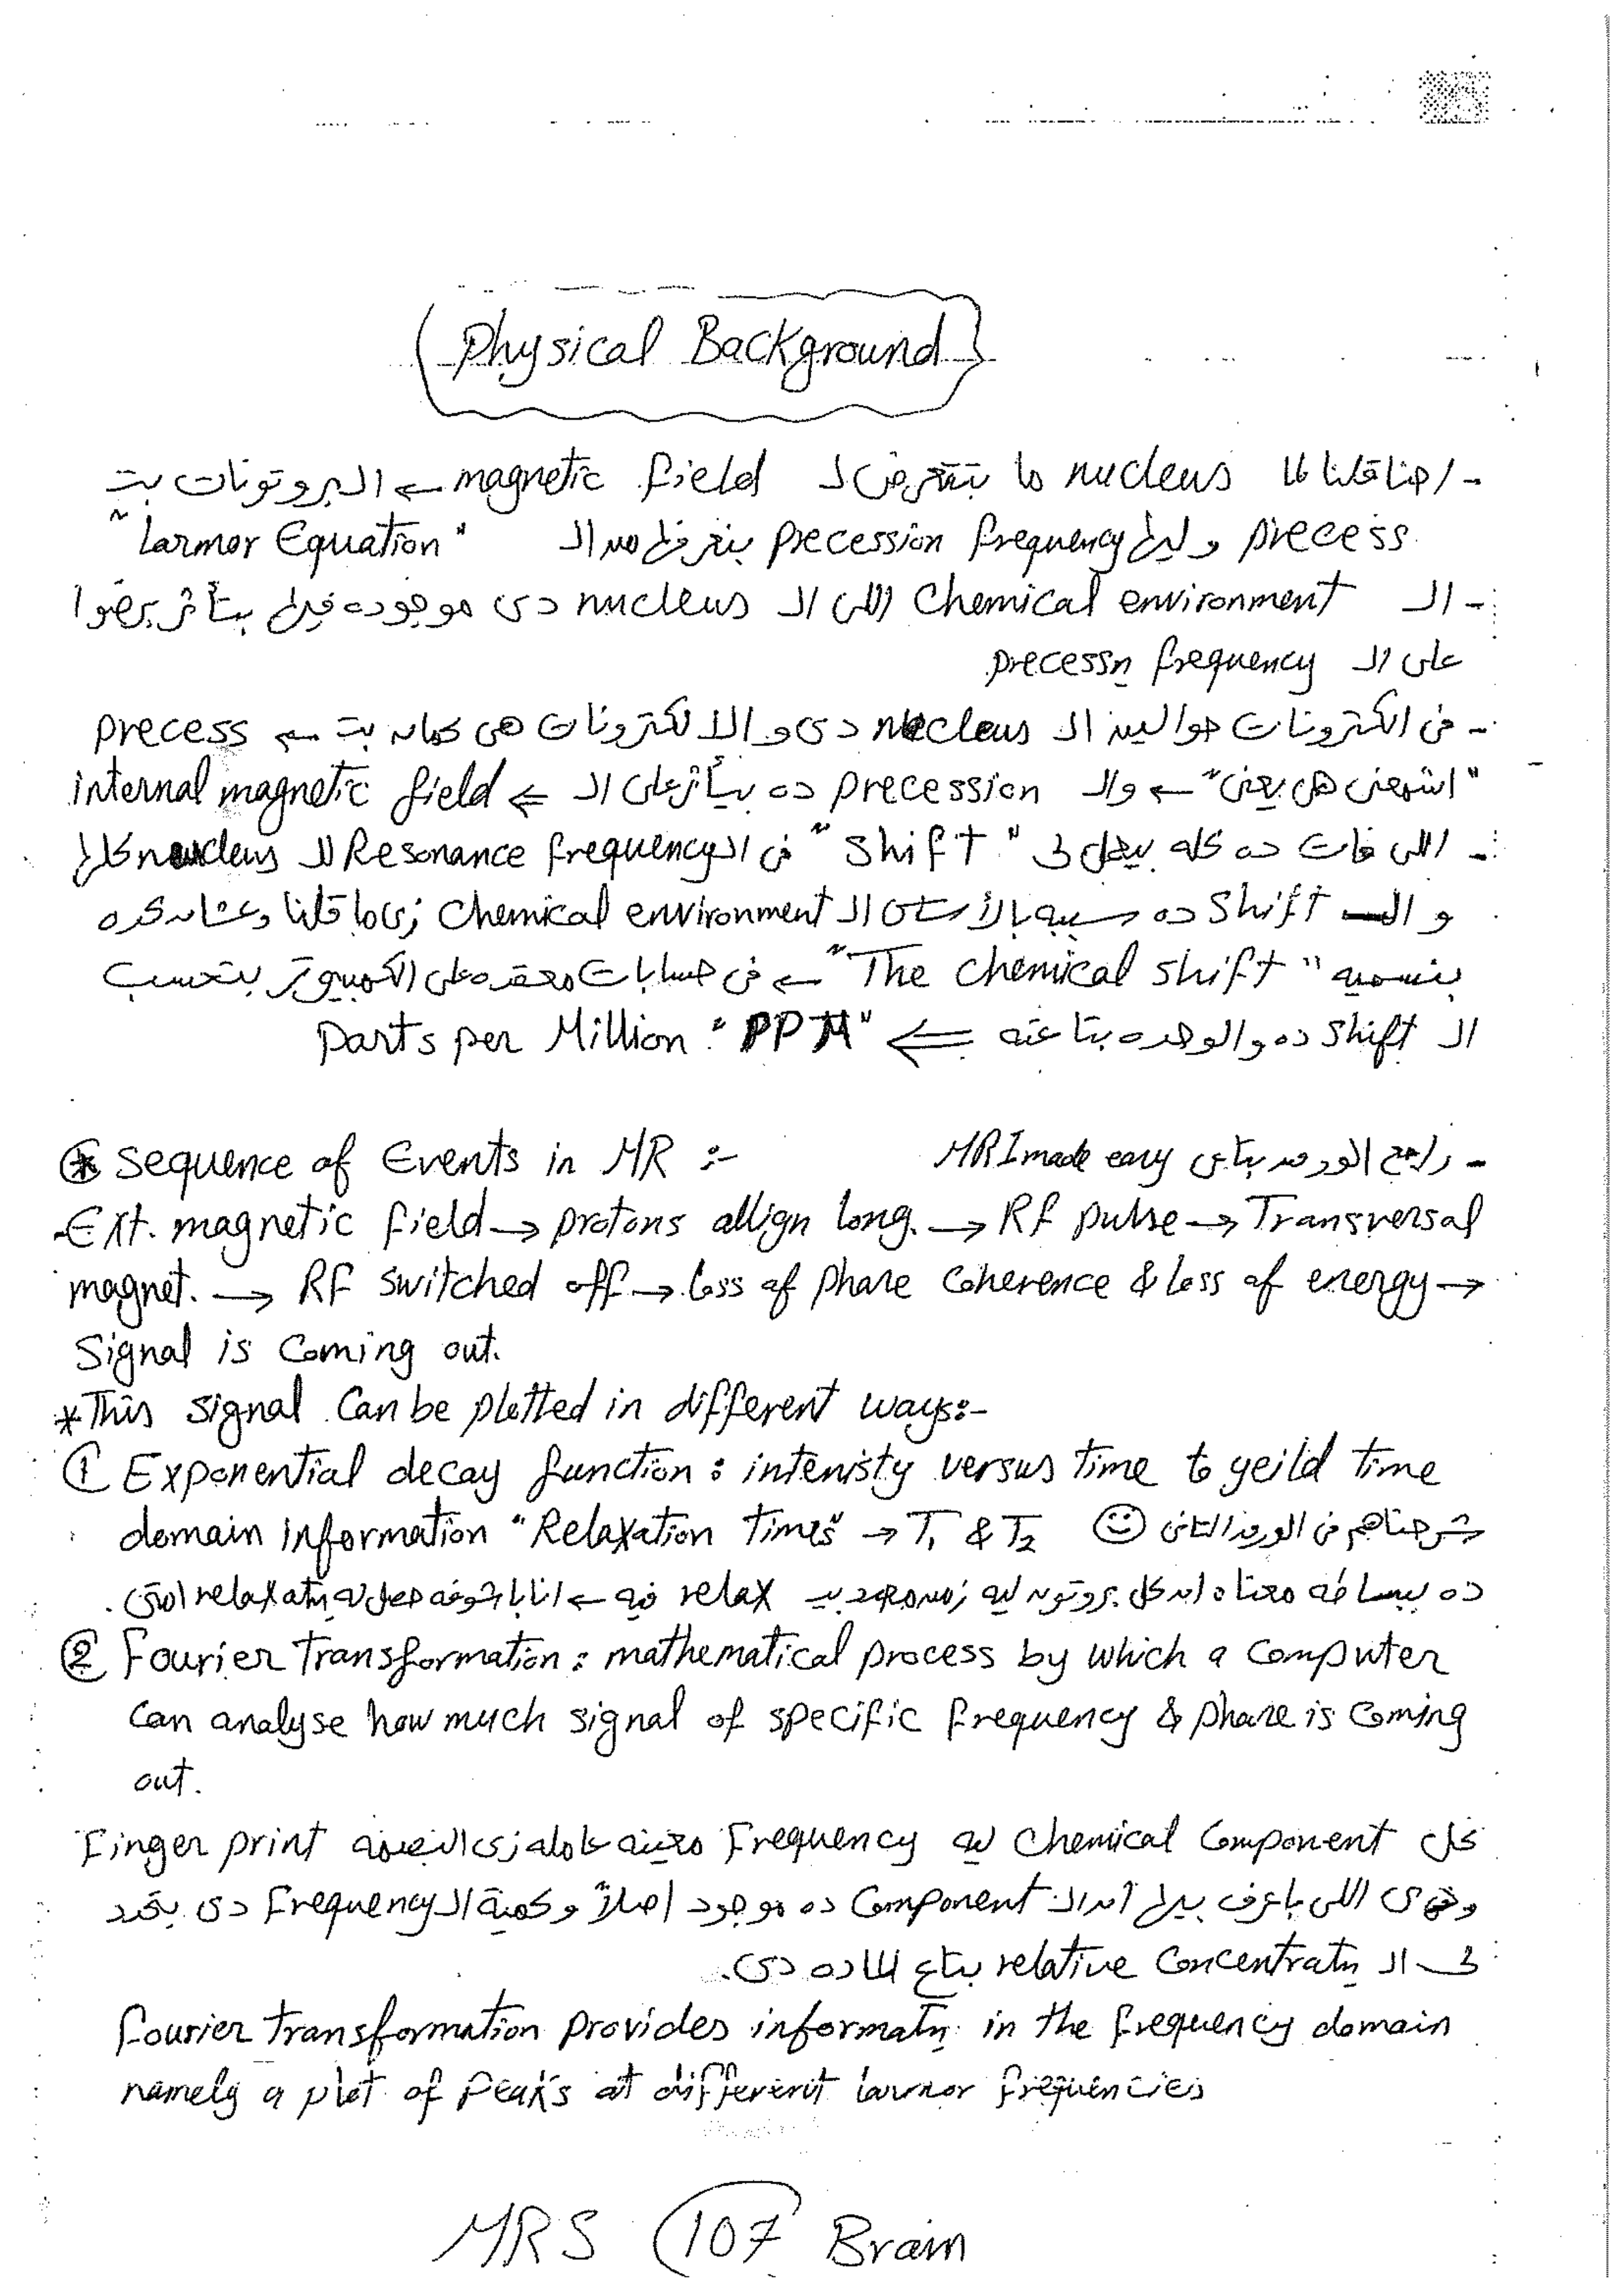 Physical Background
- احنا قلنا لما nucleus ما بتتعرض لـ magnetic field ← البروتونات بتـ
precess وليها precession frequency بنعرفها من الـ "Larmor Equation"
- الـ chemical environment اللي الـ nucleus دى موجوده فيها بيتأثر برضوا
على الـ precessn frequency
- فى الكترونات حوالين الـ nucleus دى والالكترونات هى كمان بتـ precess
"اشمعنى هى يعنى" ← والـ precession ده بيأثر على الـ ⇐ internal magnetic field
- اللى فات ده كله بيعمل لى "shift" فى الـ Resonance frequency للـ nucleus كلها
والـ shift ده سببه بالأساس الـ chemical environment زى ما قلنا وعشان كده
بنسميه "The chemical shift" ← فى حسابات معقده على الكمبيوتر بتحسب
الـ shift ده والوحده بتاعته ⇐ Parts per Million "PPM"
⊛ Sequence of Events in MR :- - راجع الورق بتاعى MRI made easy
-Ext. magnetic field → protons allign long. → RF pulse → Transversal
magnet. → RF switched off → loss of phase coherence & loss of energy →
Signal is coming out.
*This signal can be plotted in different ways:-
① Exponential decay function : intenisty versus time to yeild time
domain information "Relaxation times" → T1 & T2 ☺ شرحناهم فى الورق التانى
ده ببساطه معناه ان كل بروتون ليه زمن معين بيـ relax فيه ← انا باشوفه حصل له relaxatn امتى.
② Fourier Transformation : mathematical process by which a computer
can analyse how much signal of specific frequency & phase is coming
out.
كل chemical component ليه frequency معينه عامله زى البصمه Finger print
وهى اللى باعرف بيها ان الـ component ده موجود اصلاً وكمية الـ frequency دى بتحدد
لى الـ relative concentratn بتاع الماده دى.
Fourier transformation provides informatn in the frequency domain
namely a plot of peaks at different larmor frequencies
MRS 107 Brain